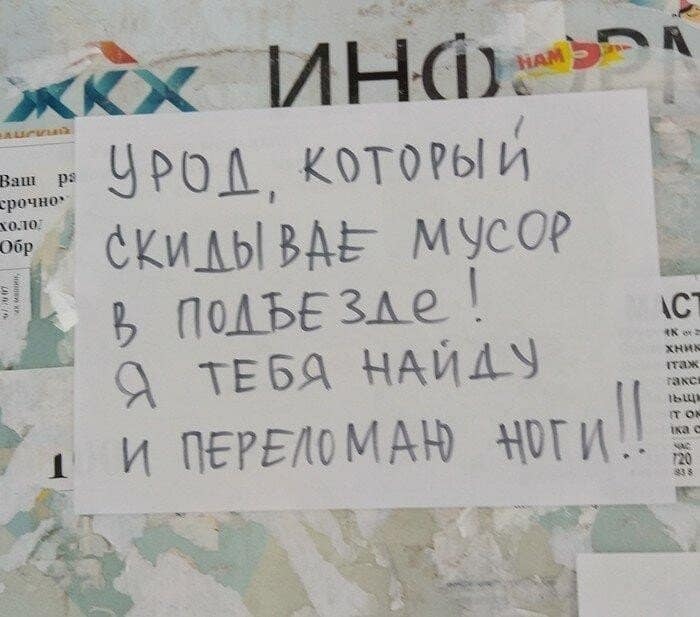 ЖКХ ИНФ
НАМ 5
Ваш
срочно
холо
Обр
УРОД, КОТОРЫЙ
СКИДЫВАЕ МУСОР
В ПОДЬЕЗДЕ!
Я ТЕБЯ НАЙДУ
И ПЕРЕЛОМАЮ НОГИ!!
АСТ
хник
такс
час
720